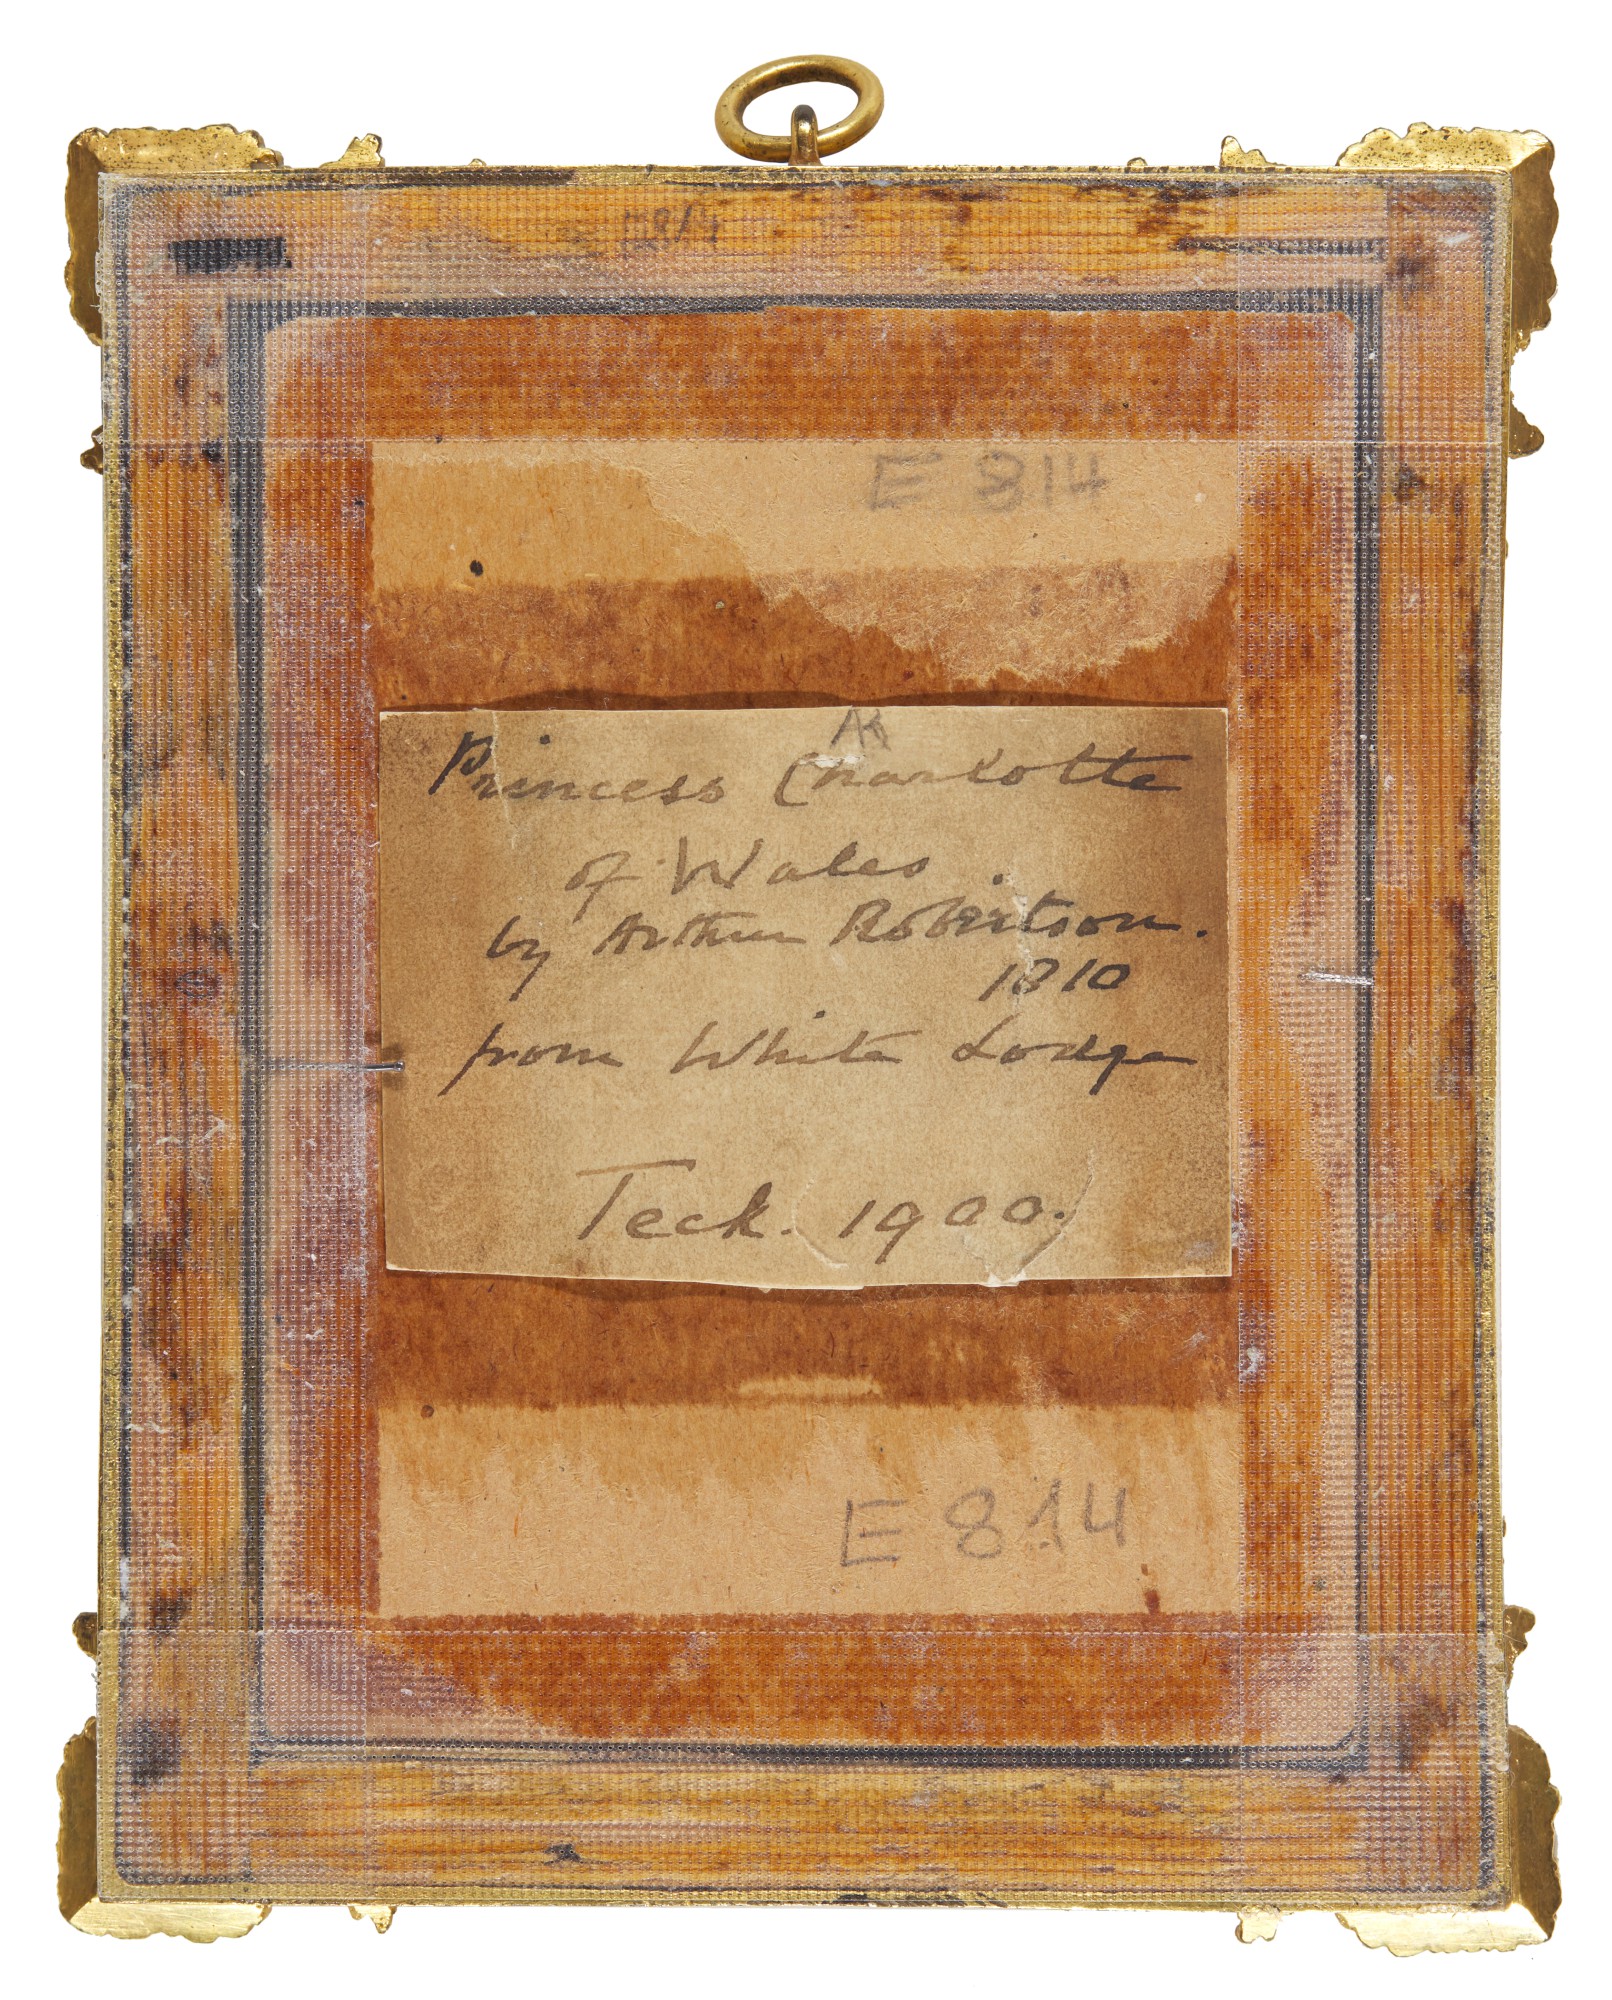 E 814
Princess Charlotte
of Wales
by Arthur Robertson.
1810
from White Lodge
Teck. 1900.
E 814